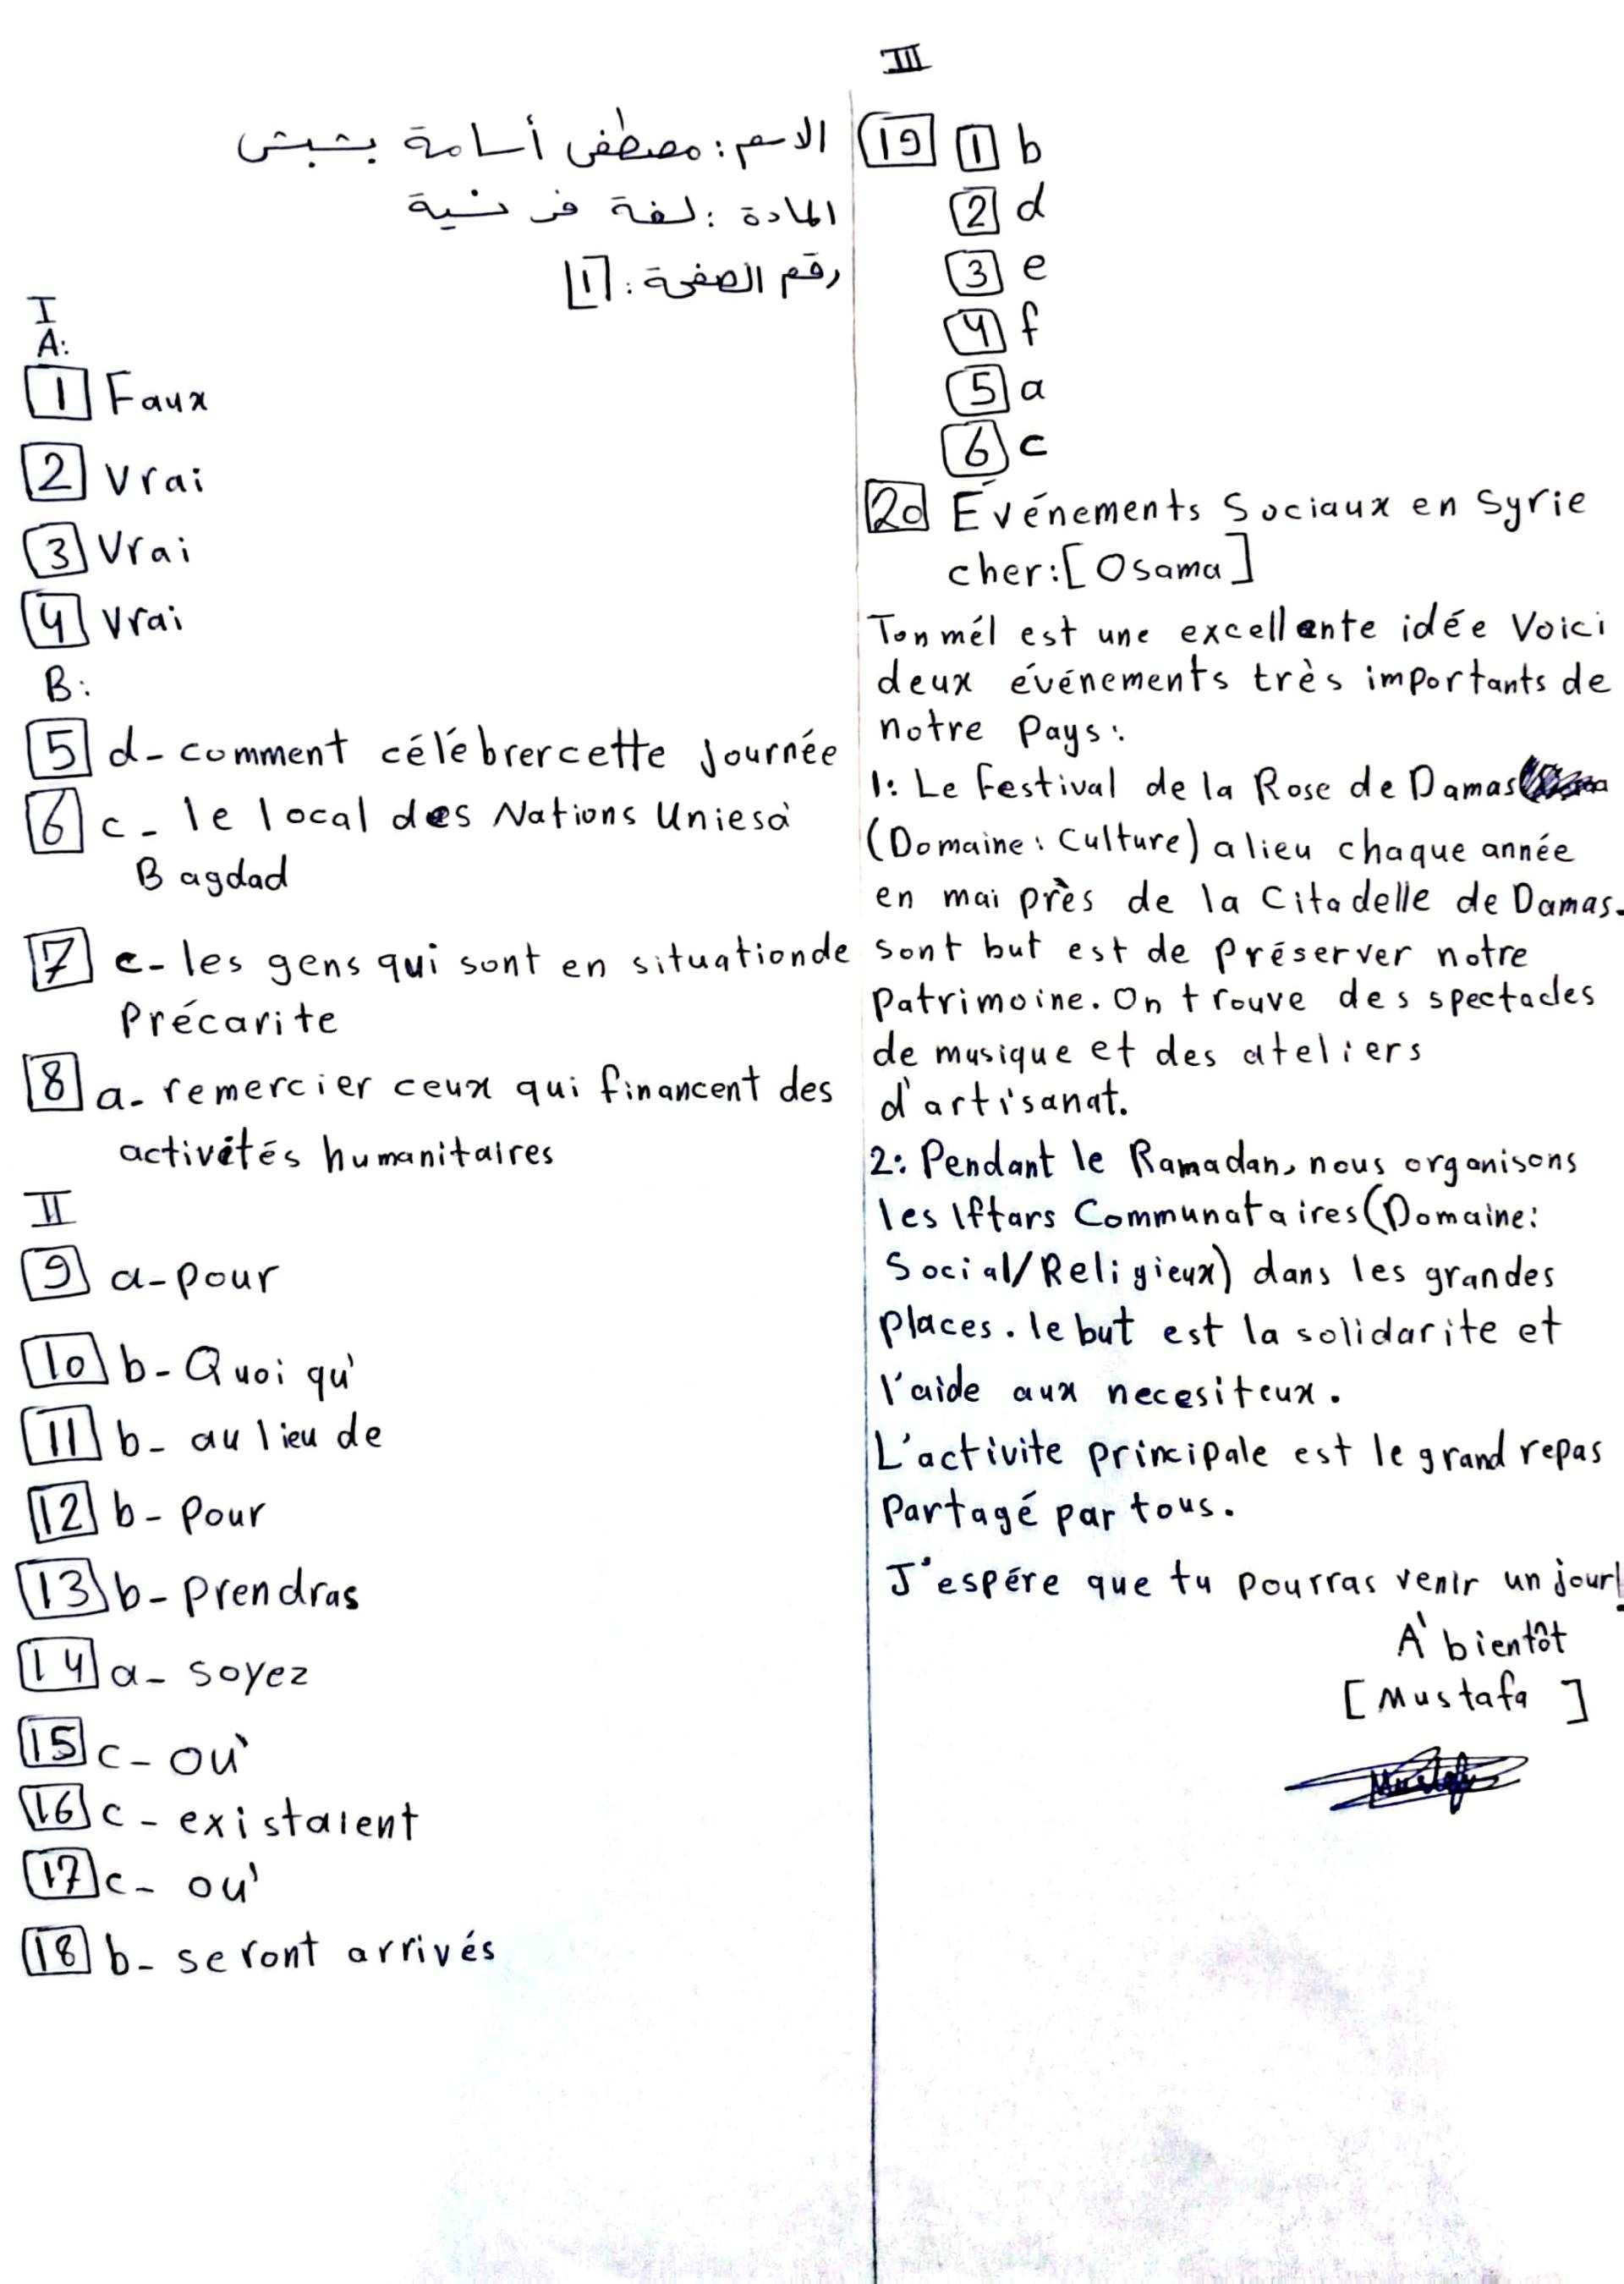 الاسم: مصطفى أسامة بشبش
المادة: لغة فرنسية
رقم الصفحة: [1]
I
A:
1 Faux
2 Vrai
3 Vrai
4 Vrai
B:
5 d- comment célébrercette Journée
6 c- le local des Nations Uniesà
Bagdad
7 c- les gens qui sont en situationde
Précarite
8 a- remercier ceux qui financent des
activités humanitaires
II
9 a- pour
10 b- Quoi qu'
11 b- au lieu de
12 b- Pour
13 b- Prendras
14 a- soyez
15 c- où
16 c- existaient
17 c- où
18 b- seront arrivés
III
19 1 b
2 d
3 e
4 f
5 a
6 c
20 Événements Sociaux en Syrie
cher:[Osama]
Ton mél est une excellente idée Voici
deux événements très importants de
notre Pays:
1: Le Festival de la Rose de Damas
(Domaine: Culture) a lieu chaque année
en mai près de la Citadelle de Damas.
sont but est de préserver notre
Patrimoine. On trouve des spectacles
de musique et des ateliers
d'artisanat.
2: Pendant le Ramadan, nous organisons
les Iftars Communataires (Domaine:
Social/Religieux) dans les grandes
places. le but est la solidarite et
l'aide aux necesiteux.
L'activite principale est le grand repas
Partagé par tous.
J'espére que tu pourras venir un jour!
À bientôt
[Mustafa]